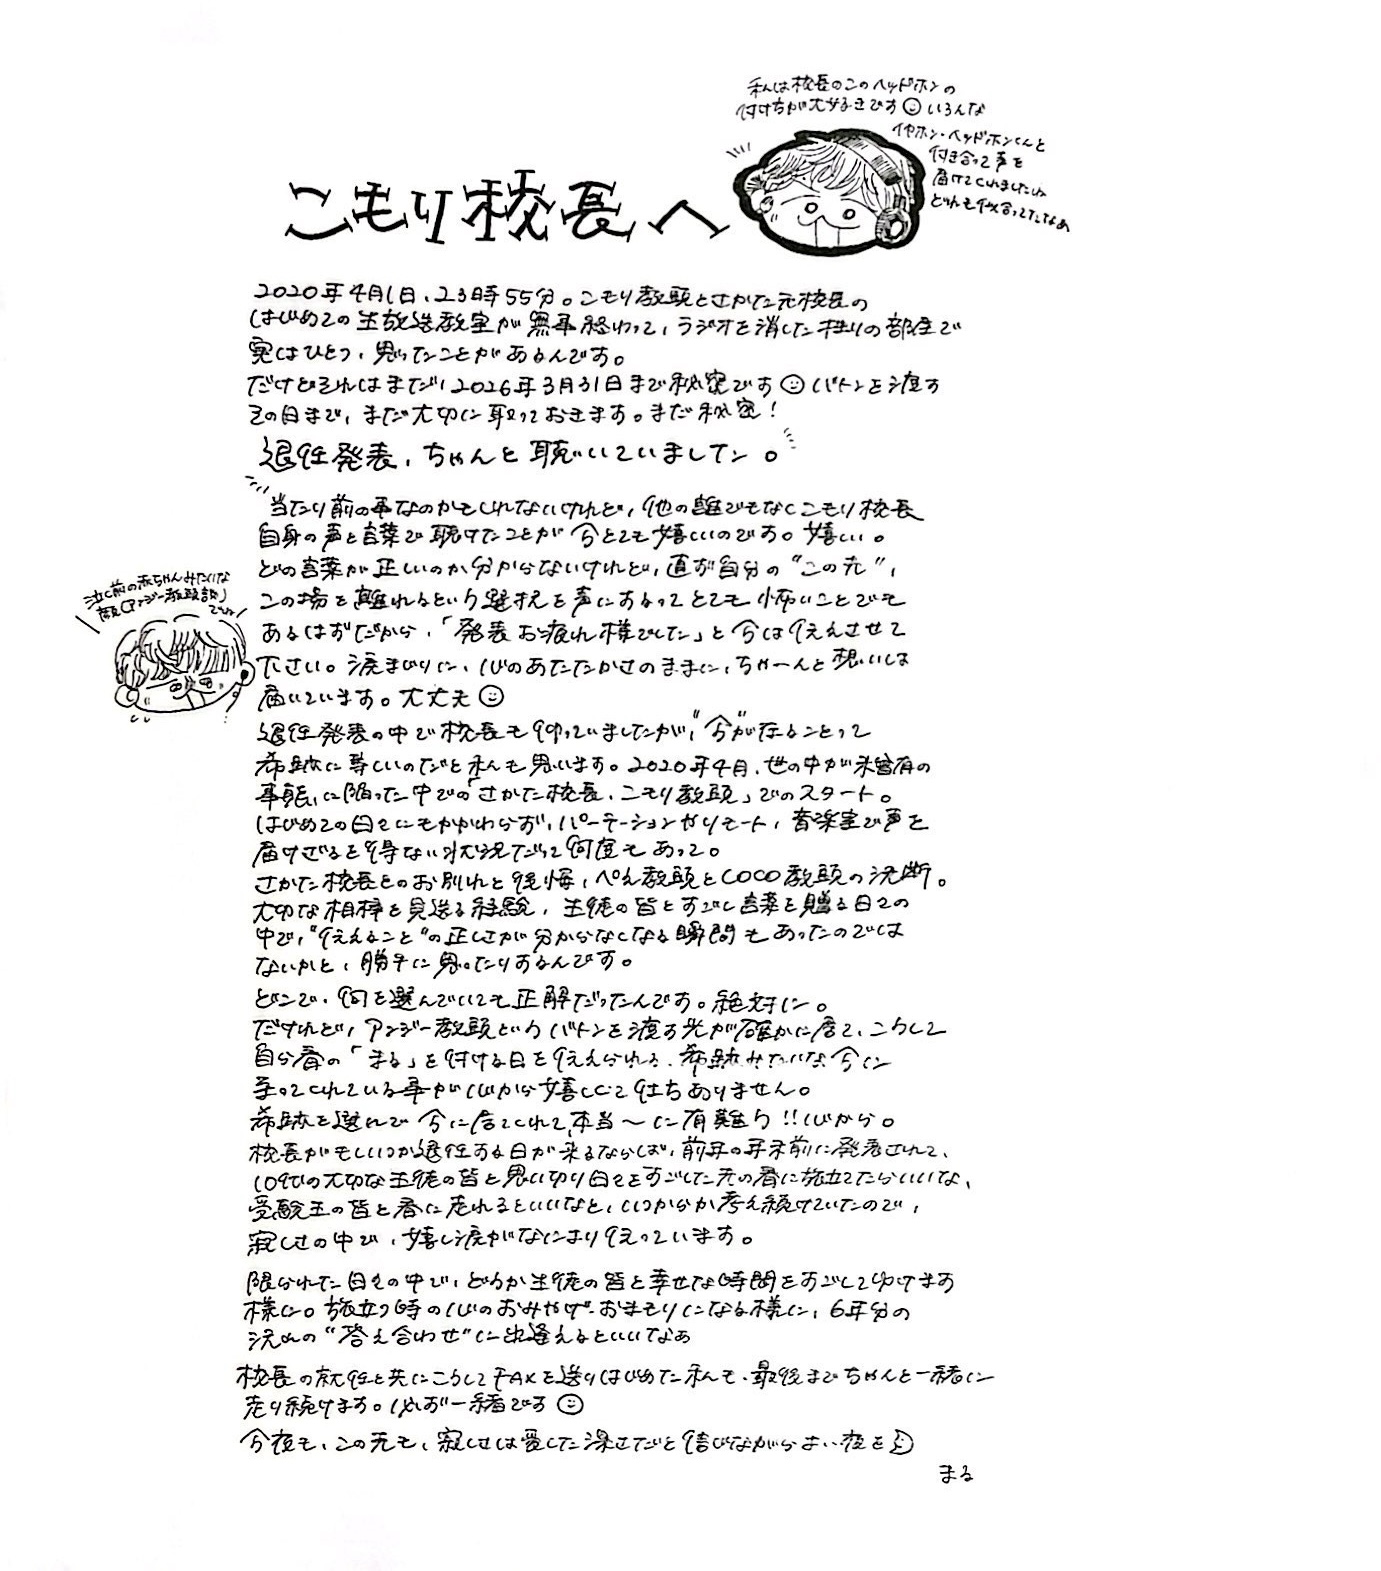 私は校長のこのヘッドホンの
付け方が大好きです いろんな
イヤホン・ヘッドホンくんと
付き合って声を
届けてくれましたね
どれも似合ってたなぁ
こもり校長へ
2020年4月1日、23時55分。こもり教頭とさかた元校長の
はじめての生放送教室が無事終わって、ラジオを消した独りの部屋で
実はひとつ、思ったことがあるんです。
だけどそれはまだ、2026年3月31日まで秘密です バトンを渡す
その日まで、まだ大切に取っておきます。まだ秘密！
退任発表、ちゃんと聴いていましたン。
当たり前の事なのかもしれないけれど、他の誰でもなくこもり校長
自身の声と言葉で聴けたことが今とても嬉しいのです。嬉しい。
どの言葉が正しいのか分からないけれど、直ぐ自分の“この先”、
この場を離れるという選択を声にするってとても怖いことでも
あるはずだから、「発表お疲れ様でした」と今は伝えさせて
下さい。涙まじりに、心のあたたかさのままに、ちゃーんと想いは
届いています。大丈夫
泣く前の赤ちゃんみたいな
顔(アンジー教頭談)
ですね
退任発表の中で校長も仰っていましたが、“今”が在ることって
奇跡に等しいのだと私も思います。2020年4月、世の中が未曾有の
事態に陥った中での「さかた校長、こもり教頭」でのスタート。
はじめての日々にもかかわらず、パーテーションやリモート、音楽室で声を
届けざるを得ない状況だって何度もあって。
さかた校長とのお別れと後悔、ぺえ教頭とCOCO教頭の決断。
大切な相棒を見送る経験、生徒の皆とすごし言葉を贈る日々の
中で、“伝えること”の正しさが分からなくなる瞬間もあったのでは
ないかと、勝手に思ったりするんです。
どこで、何を選んでいても正解だったんです。絶対に。
だけれど、アンジー教頭というバトンを渡す先が確かに居て、こうして
自分春の「まる」を付ける日を伝えられる、奇跡みたいな今に
至ってくれている事が心から嬉しくて仕方ありません。
奇跡を選んで今に居てくれて、本当〜に有難う!!心から。
校長がもしいつか退任する日が来るならば、前年の年末前に発表されて、
10代の大切な生徒の皆と思い切り日々をすごした先の春に旅立てたらいいな、
受験生の皆と春に走れるといいなと、いつからか考え続けていたので、
寂しさの中で、嬉し涙がなにより伝っています。
限られた日々の中で、どうか生徒の皆と幸せな時間をすごしてゆけます
様に。旅立つ時の心のおみやげ・おまもりになる様に、6年分の
決めの“答え合わせ”に出逢えるといいなぁ
校長の就任と共にこうしてFAXを送りはじめた私も、最後までちゃんと一緒に
走り続けます。必ず一緒です
今夜も、この先も、寂しさは愛した深さだと信じながらよい夜を
まる